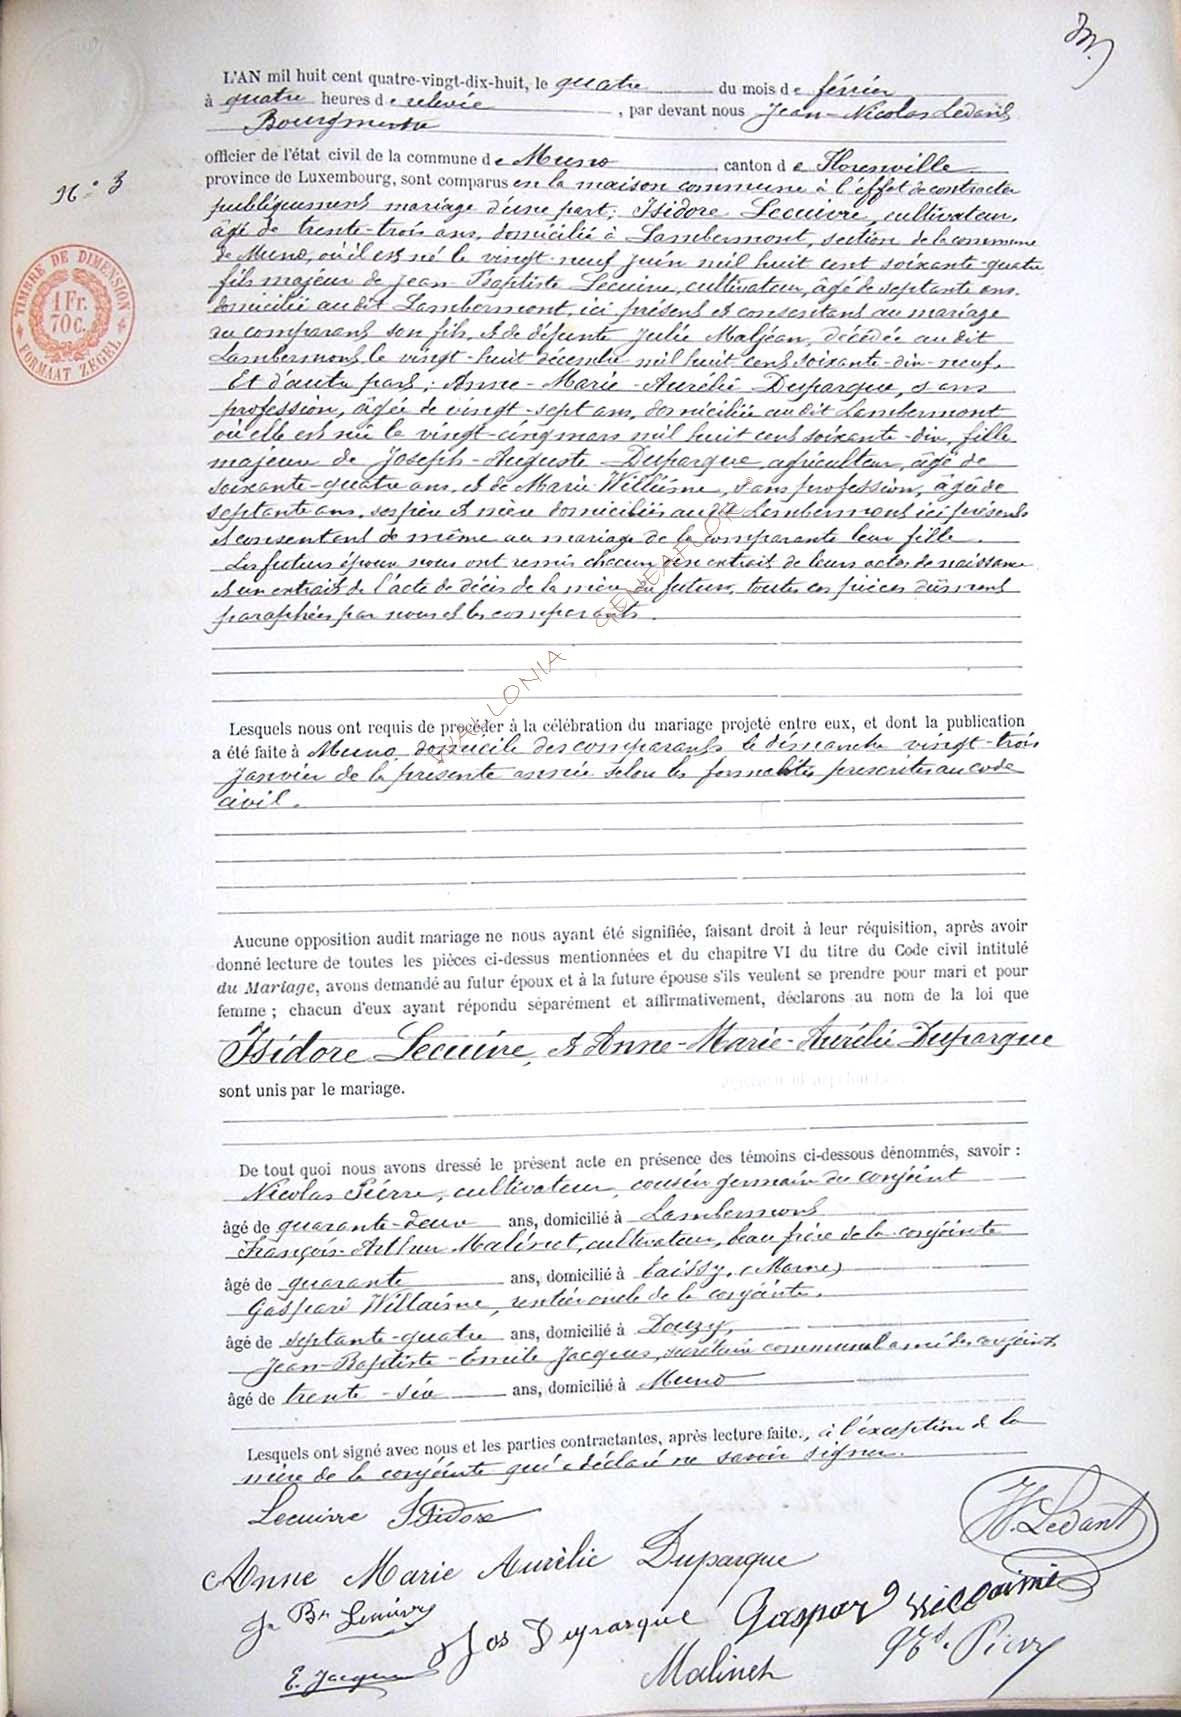 L'AN mil huit cent quatre-vingt-dix-huit, le quatre du mois de février
à quatre heures de relevée, par devant nous Jean-Nicolas Ledant
Bourgmestre
officier de l'état civil de la commune de Muno, canton de Florenville
province de Luxembourg, sont comparus en la maison commune à l'effet de contracter
N° 3
publiquement mariage d'une part, Isidore Lecuivre, cultivateur,
âgé de trente-trois ans, domicilié à Lambermont, section de la commune
de Muno, où il est né le vingt-neuf juin mil huit cent soixante-quatre
fils majeur de Jean-Baptiste Lecuivre, cultivateur, âgé de septante ans,
domicilié audit Lambermont, ici présent et consentant au mariage
du comparant son fils, et de défunte Julie Maljean, décédée audit
Lambermont le vingt-huit décembre mil huit cent soixante-dix-neuf.
Et d'autre part; Anne-Marie-Aurélie Duparque, sans
profession, âgée de vingt-sept ans, domiciliée audit Lambermont
où elle est née le vingt-cinq mars mil huit cent soixante-dix, fille
majeure de Joseph-Auguste Duparque, agriculteur, âgé de
soixante-quatre ans, et de Marie Willaime, sans profession, âgée de
septante ans, ses père et mère domiciliés audit Lambermont ici présents
et consentant de même au mariage de la comparante leur fille.
Les futurs époux nous ont remis chacun un extrait de leurs actes de naissance
et un extrait de l'acte de décès de la mère du futur, toutes ces pièces dûment
paraphées par nous et les comparants.
WALLONIA GENEAFLOR
TIMBRE DE DIMENSION
1 Fr.
70 C.
FORMAAT ZEGEL
Lesquels nous ont requis de procéder à la célébration du mariage projeté entre eux, et dont la publication
a été faite à Muno, domicile des comparants le dimanche vingt-trois
Janvier de la présente année selon les formalités prescrites au code
civil.
Aucune opposition audit mariage ne nous ayant été signifiée, faisant droit à leur réquisition, après avoir
donné lecture de toutes les pièces ci-dessus mentionnées et du chapitre VI du titre du Code civil intitulé
du Mariage, avons demandé au futur époux et à la future épouse s'ils veulent se prendre pour mari et pour
femme ; chacun d'eux ayant répondu séparément et affirmativement, déclarons au nom de la loi que
Isidore Lecuivre, et Anne-Marie-Aurélie Duparque
sont unis par le mariage.
De tout quoi nous avons dressé le présent acte en présence des témoins ci-dessous dénommés, savoir :
Nicolas Pierre, cultivateur, cousin germain du conjoint
âgé de quarante-deux ans, domicilié à Lambermont
François-Arthur Malinet, cultivateur, beau frère de la conjointe
âgé de quarante ans, domicilié à Taissy, (Marne)
Gaspard Willaime, rentier oncle de la conjointe,
âgé de septante-quatre ans, domicilié à Douzy,
Jean-Baptiste-Emile Jacques, secrétaire communal ami des conjoints
âgé de trente-six ans, domicilié à Muno
Lesquels ont signé avec nous et les parties contractantes, après lecture faite., à l'exception de la
mère de la conjointe qui a déclaré ne savoir signer.
Lecuivre Isidore
N. Ledant
Anne Marie Aurélie Duparque
J. Bte Lecuivre
Jos Duparque
Gaspard Willaime
E. Jacques
Malinet
Nas. Pierre